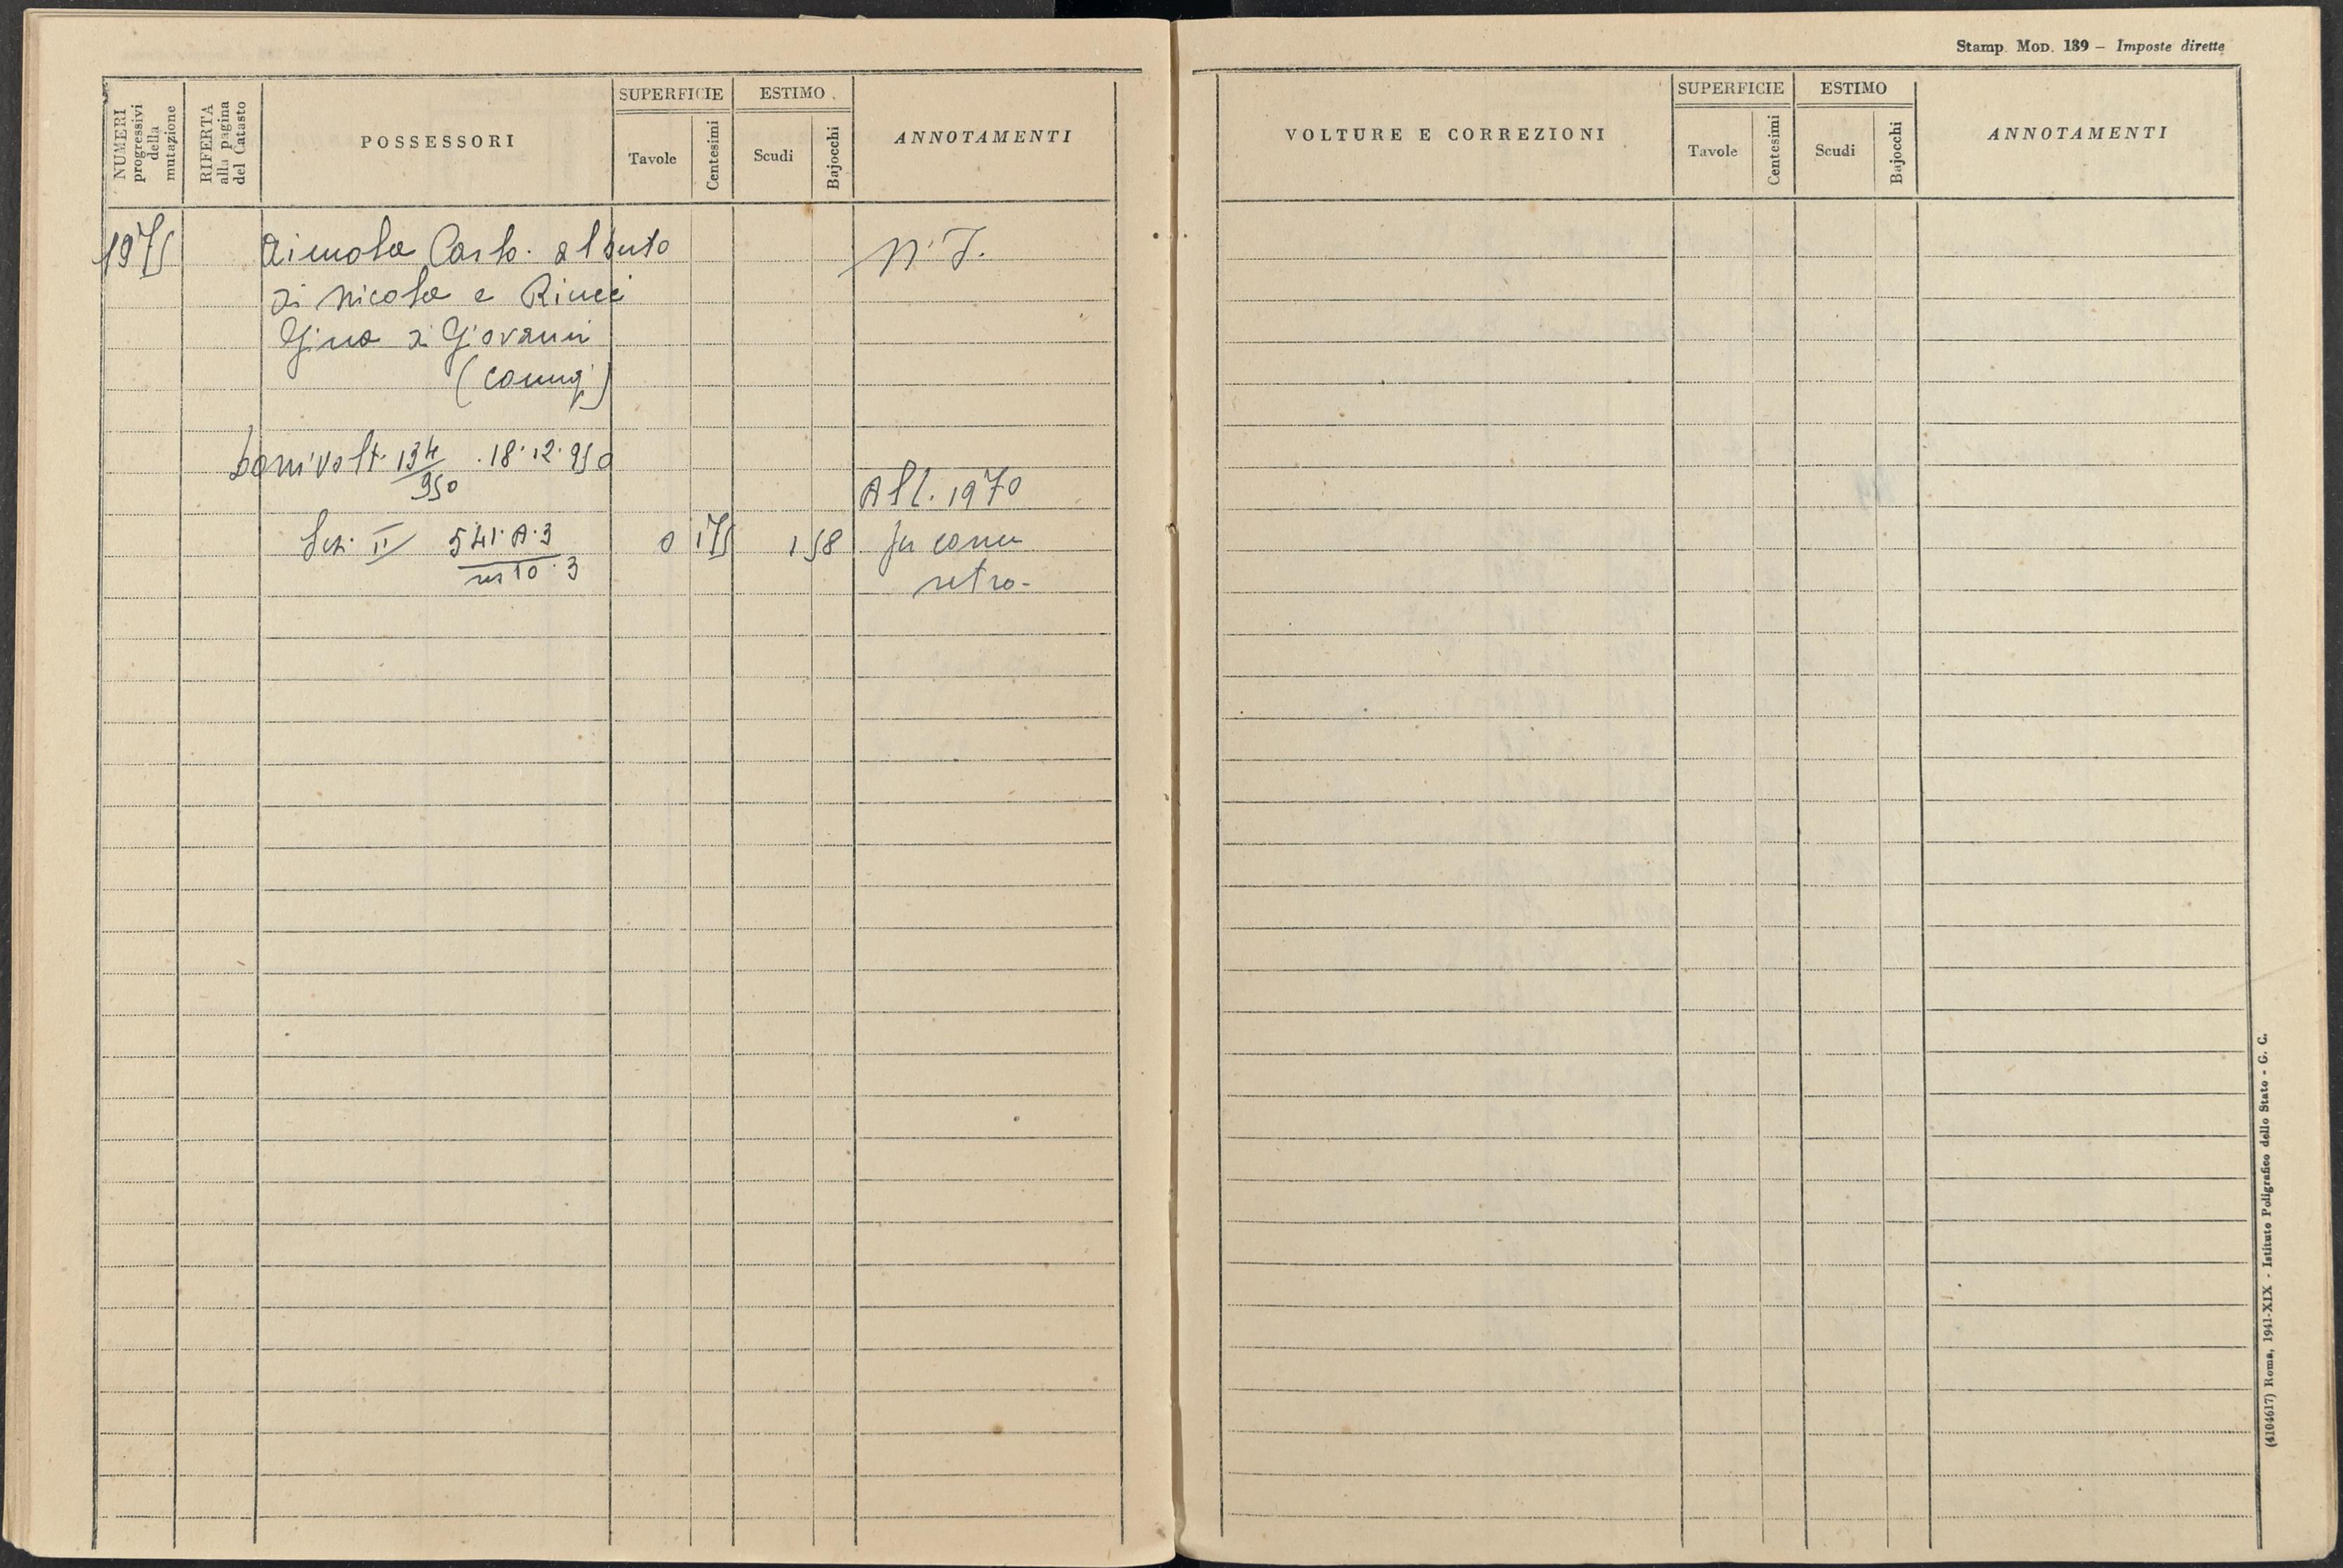 Stamp. MOD. 139 – Imposte dirette
NUMERI progressivi della mutazione
RIFERTA alla pagina del Catasto
POSSESSORI
SUPERFICIE
Tavole
Centesimi
ESTIMO
Scudi
Bajocchi
ANNOTAMENTI
VOLTURE E CORREZIONI
SUPERFICIE
Tavole
Centesimi
ESTIMO
Scudi
Bajocchi
ANNOTAMENTI
1975 Aimola Carlo. alberto N. I.
di Nicola e Ricci
Gina di Giovanni
(coniugi)
134/950 . 18.12.950
All. 1970
Sez. II 541. A. 3 0 175 1 58
10.3
retro-
(4104617) Roma, 1941-XIX - Istituto Poligrafico dello Stato - G. C.